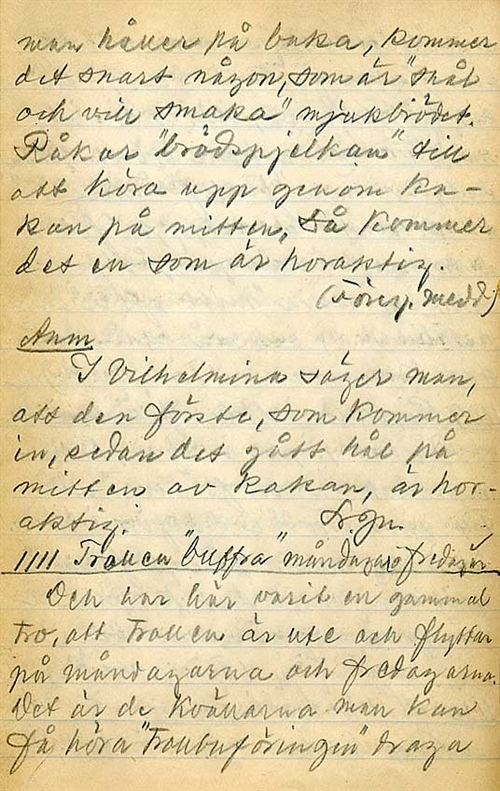 man håller på baka, kommer
det snart någon, som är "snål
och vill smaka" mjukbrödet.
Råkar "brödspjelkan" till
att köra upp genom ka-
kan på mitten, så kommer
det en som är horaktig.
(Föreg. medd.)
Anm.
I Vilhelmina säger man,
att den förste, som kommer
in, sedan det gått hål på
mitten av kakan, är hor-
aktig.
1111 Trollen "buffra" måndagar o fredagar
Det har här varit en gammal
tro, att trollen är ute och flyttar
på måndagarna och fredagarna.
Det är de kvällarna man kan
få höra "trollbuföringen" draga